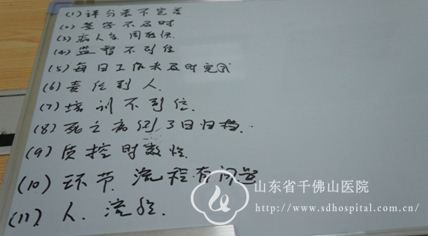 (1) 评分表不完善
(2) 签字不及时
(3) 病人多 周转快
(4) 监督不到位
(5) 每日工作未及时完成
(6) 责任到人
(7) 培训不到位.
(8) 死亡病例3日归档.
(9) 质控时效性
(10) 环节、流程有问题
(11) 人、流程.
山东省千佛山医院
http://www.sdhospital.com.cn/